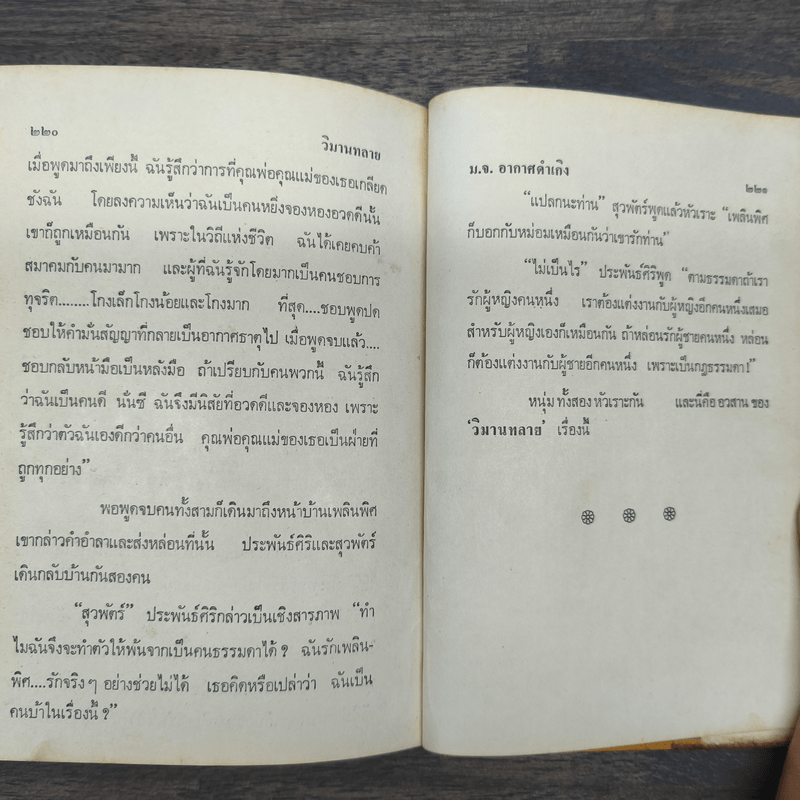 ๒๒๐
วิมานทลาย
เมื่อพูดมาถึงเพียงนี้ ฉันรู้สึกว่าการที่คุณพ่อคุณแม่ของเธอเกลียด
ชังฉัน โดยลงความเห็นว่าฉันเป็นคนหยิ่งจองหองอวดดีนั้น
เขาก็ถูกเหมือนกัน เพราะในวิถีแห่งชีวิต ฉันได้เคยคบค้า
สมาคมกับคนมามาก และผู้ที่ฉันรู้จักโดยมากเป็นคนชอบการ
ทุจริต........โกงเล็กโกงน้อยและโกงมาก ที่สุด....ชอบพูดปด
ชอบให้คำมั่นสัญญาที่กลายเป็นอากาศธาตุไป เมื่อพูดจบแล้ว....
ชอบกลับหน้ามือเป็นหลังมือ ถ้าเปรียบกับคนพวกนี้ ฉันรู้สึก
ว่าฉันเป็นคนดี นั่นซี ฉันจึงมีนิสัยที่อวดดีและจองหอง เพราะ
รู้สึกว่าตัวฉันเองดีกว่าคนอื่น คุณพ่อคุณแม่ของเธอเป็นฝ่ายที่
ถูกทุกอย่าง”
พอพูดจบคนทั้งสามก็เดินมาถึงหน้าบ้านเพลินพิศ
เขากล่าวคำอำลาและส่งหล่อนที่นั้น ประพันธ์ศิริและสุวพัตร์
เดินกลับบ้านกันสองคน
“สุวพัตร์” ประพันธ์ศิริกล่าวเป็นเชิงสารภาพ “ทำ
ไมฉันจึงจะทำตัวให้พ้นจากเป็นคนธรรมดาได้ ? ฉันรักเพลิน-
พิศ....รักจริงๆ อย่างช่วยไม่ได้ เธอคิดหรือเปล่าว่า ฉันเป็น
คนบ้าในเรื่องนี้ ?”
ม.จ. อากาศดำเกิง
๒๒๑
“แปลกนะท่าน” สุวพัตร์พูดแล้วหัวเราะ “เพลินพิศ
ก็บอกกับหม่อมเหมือนกันว่าเขารักท่าน”
“ไม่เป็นไร” ประพันธ์ศิริพูด “ตามธรรมดาถ้าเรา
รักผู้หญิงคนหนึ่ง เราต้องแต่งงานกับผู้หญิงอีกคนหนึ่งเสมอ
สำหรับผู้หญิงเองก็เหมือนกัน ถ้าหล่อนรักผู้ชายคนหนึ่ง หล่อน
ก็ต้องแต่งงานกับผู้ชายอีกคนหนึ่ง เพราะเป็นกฎธรรมดา!”
หนุ่ม ทั้งสอง หัวเราะกัน และนี่คือ อวสาน ของ
‘วิมานทลาย’ เรื่องนี้